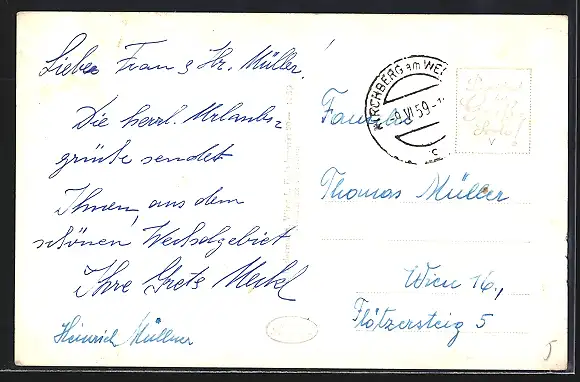 Liebe Frau & Hr. Müller!
Die herrl. Urlaubs-
grüße sendet
Ihnen, aus dem
schönen Wechselgebiet
Ihre Grete Merkl
Heinrich Müllner
KIRCHBERG am WE
-8.VI.59-
c
Familie
Thomas Müller
Wien 16.,
Flötzersteig 5
5